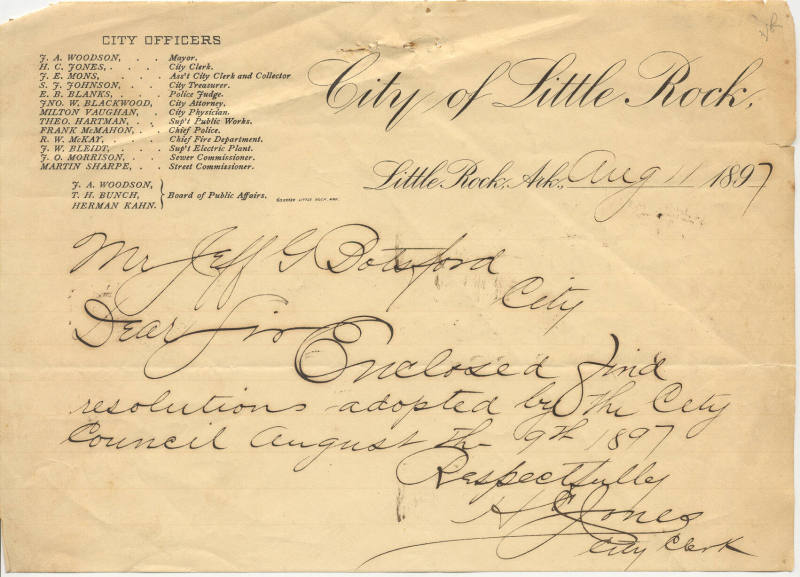 CITY OFFICERS
J. A. WOODSON, . . Mayor.
H. C. JONES, . . . City Clerk.
J. E. MONS, . . . Ass't City Clerk and Collector
S. J. JOHNSON, . . City Treasurer.
E. B. BLANKS, . . . Police Judge.
JNO. W. BLACKWOOD, City Attorney.
MILTON VAUGHAN, . City Physician.
THEO. HARTMAN, . . Sup't Public Works.
FRANK McMAHON, . . Chief Police.
R. W. McKAY, . . . Chief Fire Department.
J. W. BLEIDT, . . . Sup't Electric Plant.
J. O. MORRISON, . . Sewer Commissioner.
MARTIN SHARPE, . . Street Commissioner.
J. A. WOODSON,
T. H. BUNCH, Board of Public Affairs.
HERMAN KAHN.
LITTLE ROCK, ARK.
City of Little Rock,
Little Rock, Ark., Aug 11 1897
Mr Jeff G Botsford
City
Dear Sir
Enclosed find
resolutions adopted by the City
Council August the 9th 1897
Respectfully
H C Jones
City Clerk